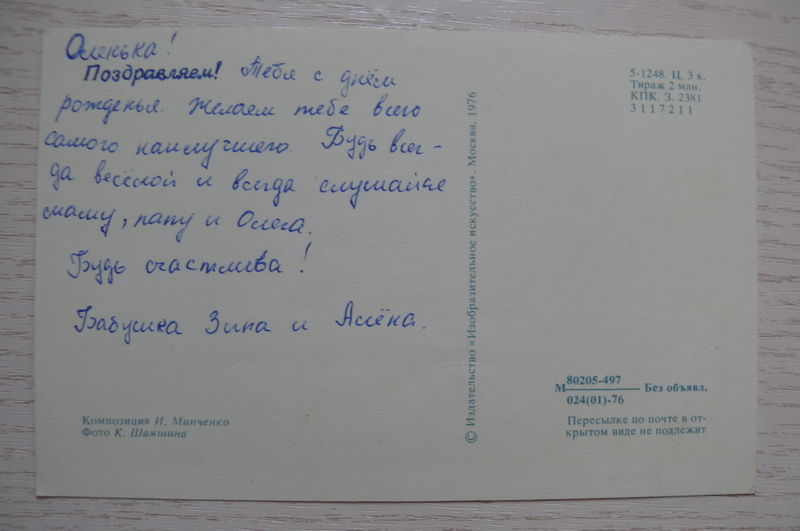 Оленька!
Поздравляем! Тебя с днём
рожденья. Желаем тебе всего
самого наилучшего. Будь всег-
да весёлой и всегда слушайся
маму, папу и Олега.
Будь счастлива!
Бабушка Зина и Алёна.
Композиция И. Минченко
Фото К. Шамшина
© Издательство «Изобразительное искусство». Москва. 1976
5-1248. Ц. 3 к.
Тираж 2 млн.
КПК. З. 2381
3117211
М 80205-497 Без объявл.
024(01)-76
Пересылке по почте в от-
крытом виде не подлежит